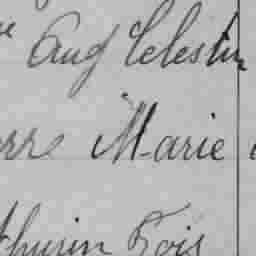 Aug Celestin
erre Marie
thurin Fois